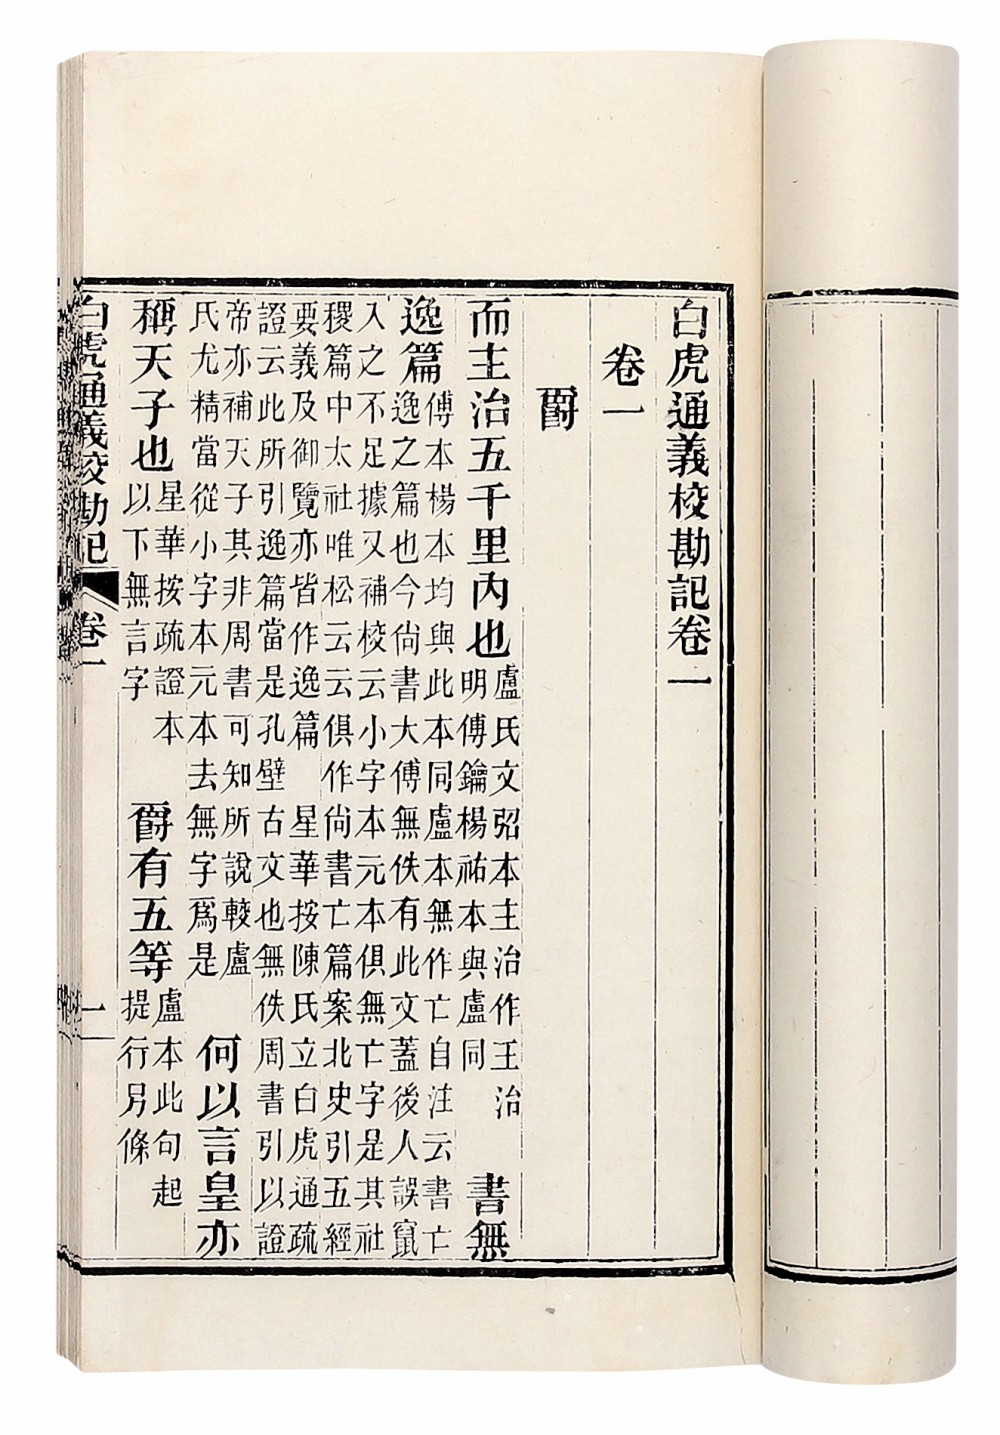 白虎通義校勘記卷一
卷一
爵
而主治五千里内也
盧氏文弨本主治作王治
明傅鑰楊祐本與盧同
書無
逸篇
傅本楊本均與此本同盧本無作亡自注云書亡
逸之篇也今尚書大傅無佚有此文蓋後人誤竄
入之不足據又補校云小字本元本俱無亡字是其社
稷篇中太社唯松云云俱作尚書亡篇案北史引五經
要義及御覽亦皆作逸篇　星華按陳氏立白虎通疏
證云此所引逸篇當是孔壁古文也無佚周書引以證
帝亦補天子其非周書可知所說較盧
氏尤精當從小字本元本去無字爲是
何以言皇亦
稱天子也
星華按疏證本
以下無言字
爵有五等
盧本此句起
提行另條
白虎通義校勘記　卷一　一